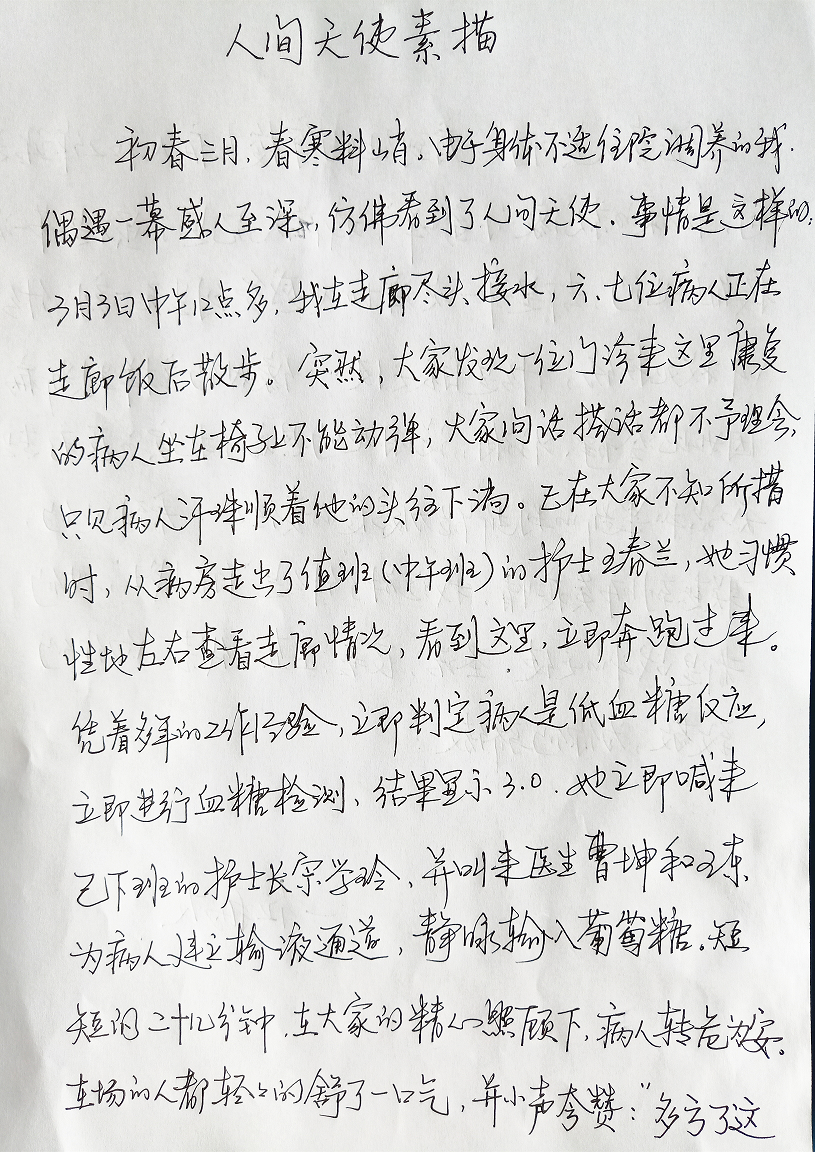 人间天使素描
初春三月,春寒料峭。由于身体不适住院调养的我,
偶遇一幕感人至深,仿佛看到了人间天使。事情是这样的:
3月3日中午12点多,我在走廊尽头接水,六、七位病人正在
走廊饭后散步。突然,大家发现一位门诊来这里康复
的病人坐在椅子上不能动弹,大家问话搭话都不予理会,
只见病人汗珠顺着他的头往下淌。正在大家不知所措
时,从病房走出了值班(中午班)的护士王春兰,她习惯
性地左右查看走廊情况,看到这里,立即奔跑过来。
凭着多年的工作经验,立即判定病人是低血糖反应,
立即进行血糖检测,结果显示3.0.她立即喊来
已下班的护士长宗学玲,并叫来医生曹坤和王东
为病人建立输液通道,静脉输入葡萄糖。短
短的二十几分钟,在大家的精心照顾下,病人转危为安。
在场的人都轻轻的舒了一口气,并小声夸赞:“多亏了这